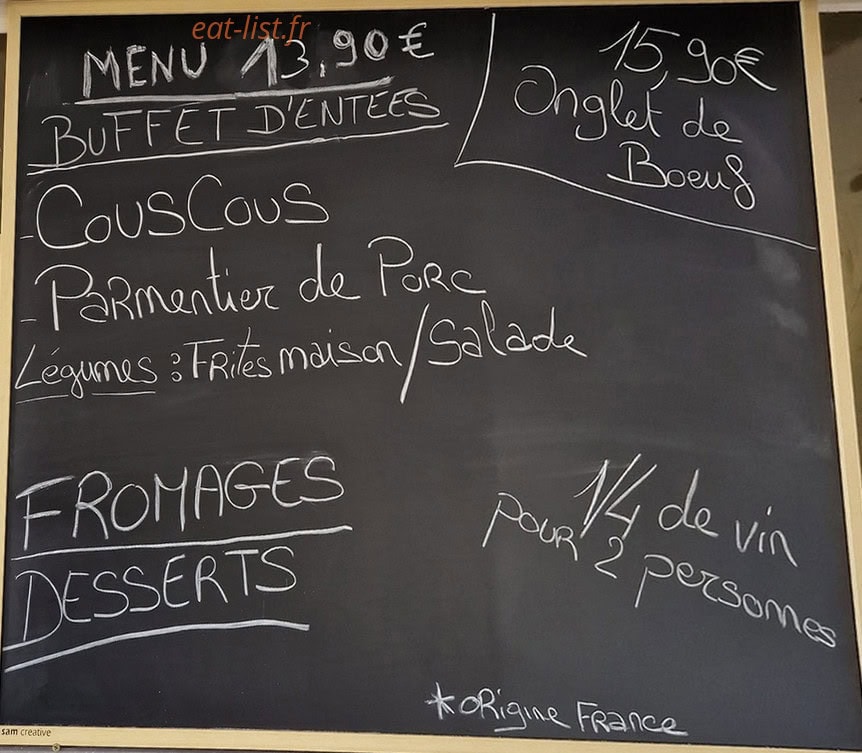 eat-list.fr
MENU 13,90€
BUFFET D'ENTÉES
15,90€
Onglet de
Boeuf
-COUSCOUS
-PARmentier de PORC
Légumes : FRites maison/Salade
FROMAGES
DESSERTS
1/4 de vin
POUR 2 personnes
*ORigine FRANCE
sam creative